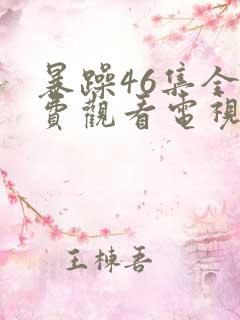 暴躁46集全
費觀看電視
王棟吾